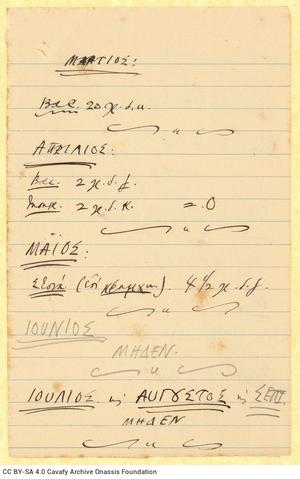 ΜΑΡΤΙΟΣ:
Βασ. 20 χ.δ.κ.
ΑΠΡΙΛΙΟΣ:
Βασ. 2 χ.δ.χ.
2 χ.δ.κ. = 0
ΜΑΪΟΣ:
4 1/2 χ.δ.χ.
ΙΟΥΝΙΟΣ
ΜΗΔΕΝ.
ΙΟΥΛΙΟΣ ΑΥΓΟΥΣΤΟΣ ΣΕΠΤ.
ΜΗΔΕΝ
CC BY-SA 4.0 Cavafy Archive Onassis Foundation